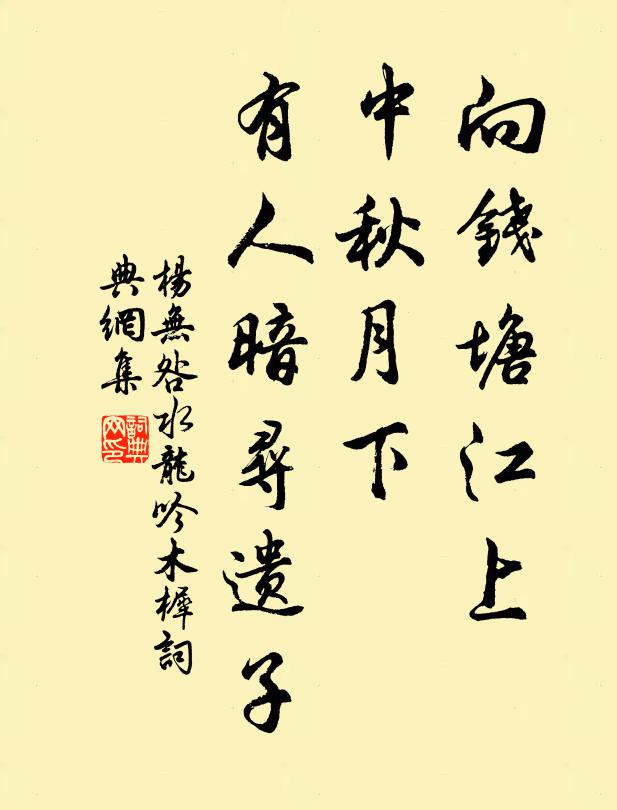 向錢塘江上
中秋月下
有人暗尋遺子
楊無咎水龍吟木樨詞
典網集
詞典網印